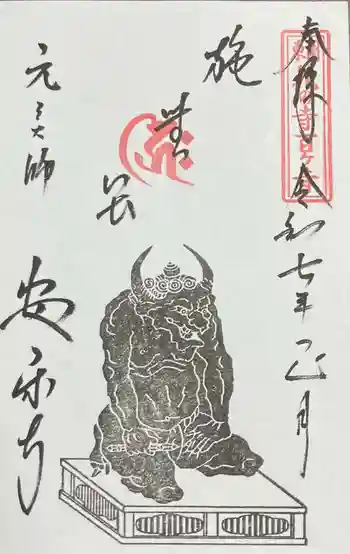 奉拝
令和七年正月
施
無
畏
元三大師
安楽寺